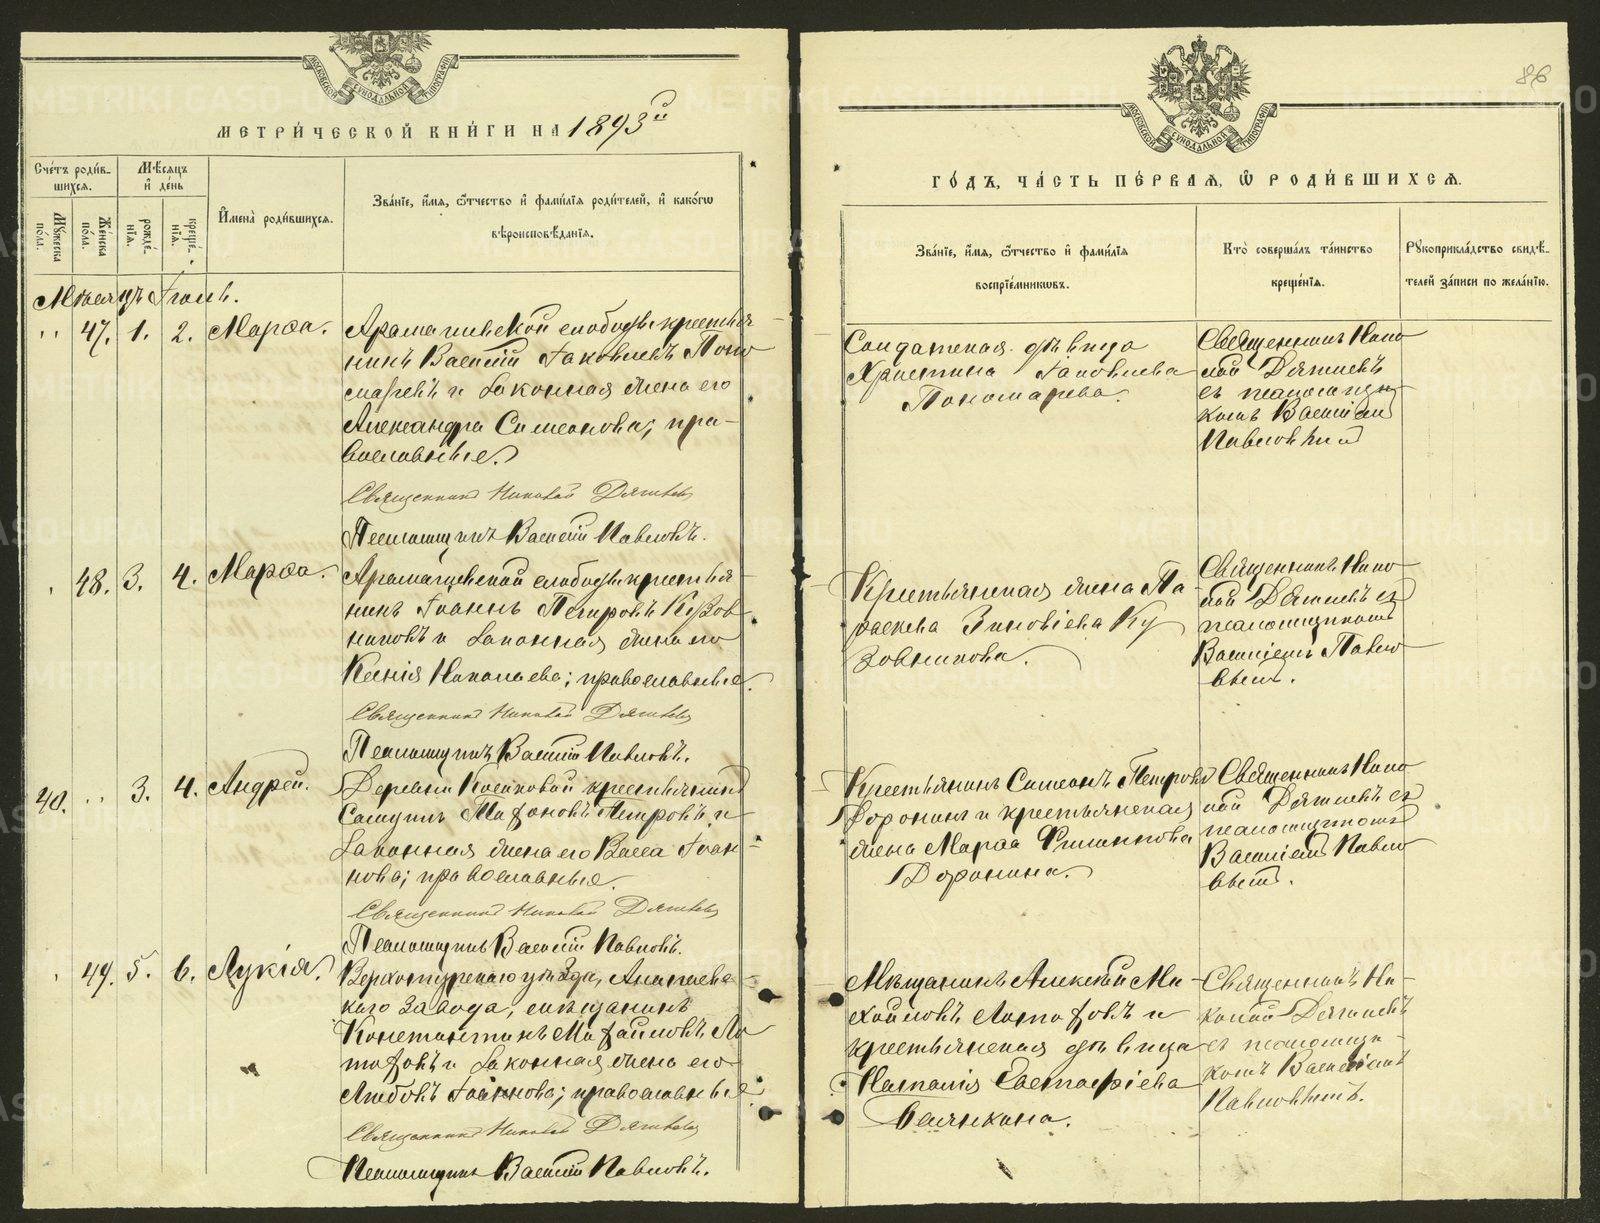 МОСКОВСКОЙ СУНОДАЛЬНОЙ ТИПОГРАФІИ
МЕТРИ́ЧЕСКОЙ КНИ́ГИ НА 1893й
Сче́тъ роди́в-
шихсѧ.
Мѣ́сѧцъ
и҆ де́нь
Мꙋ́жеска
по́ла.
Же́нска
по́ла.
рожде́-
нїѧ.
креще́-
нїѧ.
И҆мена̀ роди́вшихсѧ.
Зва́нїе, и҆́мѧ, ѻ҆́тчество и҆ фами́лїѧ роди́телей, и҆ како́гѡ
вѣроисповѣ́данїѧ.
Мѣсяцъ Іюль.
" 47. 1. 2. Марѳа.
Арамашевской слободы крестья-
нинъ Василій Іаковлевъ Поно
маревъ и законная жена его
Александра Симеонова; пра-
вославные.
Священникъ Николай Дягилевъ
Псаломщикъ Василій Павловъ.
" 48. 3. 4. Марѳа.
Арамашевской слободы крестья-
нинъ Іоаннъ Петровъ Кузов-
никовъ и законная жена его
Ксенія Николаева; православные.
Священникъ Николай Дягилевъ
Псаломщикъ Василій Павловъ.
40. " 3. 4. Андрей.
Деревни Косиковой крестьянинъ
Самуилъ Петровъ и
законная жена его Васса Іоан-
нова; православные.
Священникъ Николай Дягилевъ
Псаломщикъ Василій Павловъ.
" 49. 5. 6. Лукія.
Верхотурскаго уѣзда, Алапаевс-
каго завода, мѣщанинъ
Константинъ Михайловъ
и законная жена его
Любовь Іоаннова; православные
Священникъ Николай Дягилевъ
Псаломщикъ Василій Павловъ.
86
МОСКОВСКОЙ СУНОДАЛЬНОЙ ТИПОГРАФІИ
ГО́ДЪ, ЧА́СТЬ ПЕ́РВАѦ, Ѡ҆ РОДИ́ВШИХСѦ.
Зва́нїе, и҆́мѧ, ѻ҆́тчество и҆ фами́лїѧ
воспрїе́мникѡвъ.
Кто̀ соверша́лъ та́инство
креще́нїѧ.
Рꙋкоприкла́дство свидѣ́-
телей за́писи по жела́нїю.
Солдатская дѣвица
Христина Іаковлева
Пономарева.
Священникъ Нико
лай Дягилевъ
съ псаломщи
комъ Василіемъ
Павловымъ
Крестьянская жена Па-
раскева Зиновіева Ку
зовникова.
Священникъ Нико-
лай Дягилевъ съ
псаломщикомъ
Василіемъ Павло
вымъ.
Крестьянинъ Симеонъ Петровъ
Доронинъ и крестьянская
жена Марѳа Филиппова
Доронина.
Священникъ Нико
лай Дягилевъ съ
псаломщикомъ
Василіемъ Павло
вымъ.
Мѣщанинъ Алексѣй Ми-
хайловъ и
крестьянская дѣвица
Наталія Евстафіева
Священникъ Ни-
колай Дягилевъ
съ псаломщи-
комъ Василіемъ
Павловымъ.
METRIKI.GASO-URAL.RU